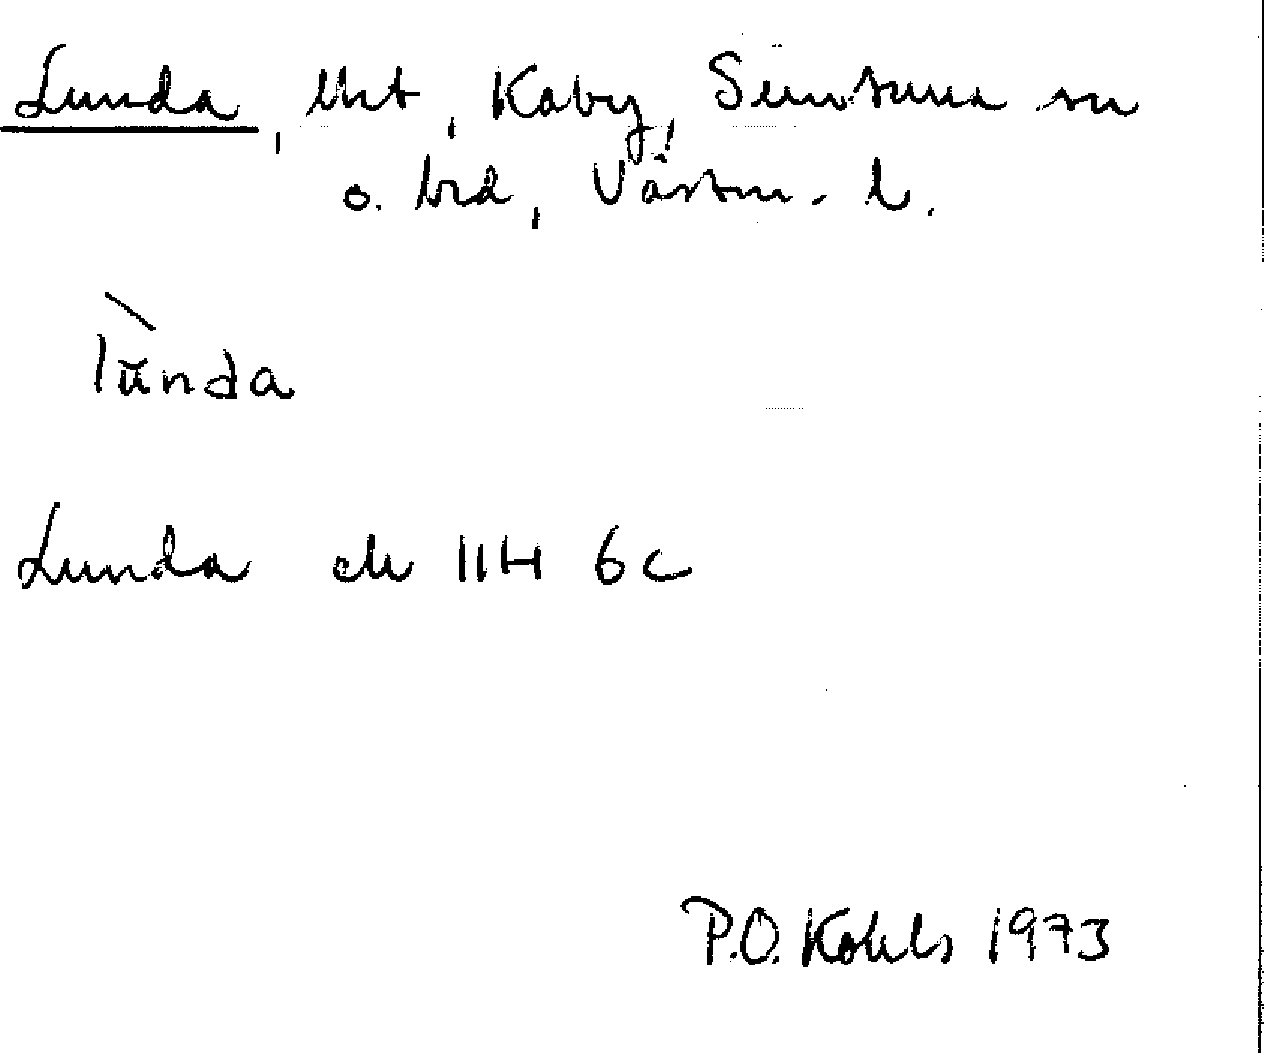 Lunda, Uht, Kaby, Simtuna sn
o. hd, Västm. l.
lùnda
Lunda ek 11H 6c
P.O. Kohls 1973